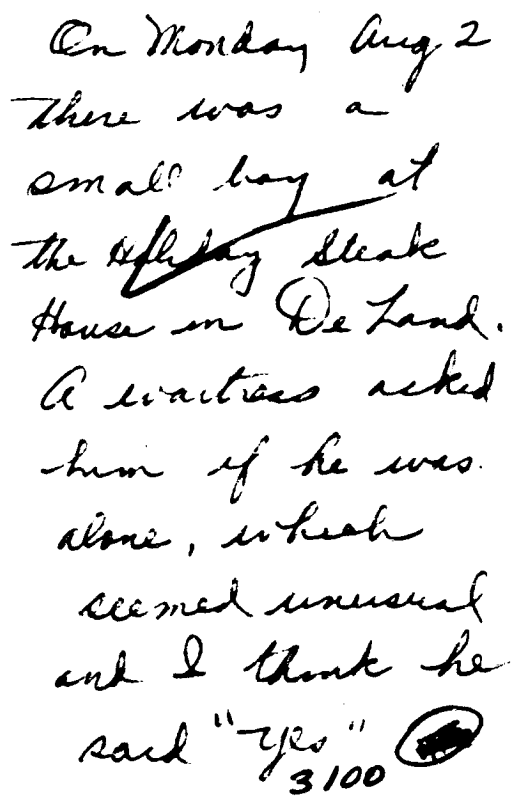 On Monday Aug 2
there was a
small boy at
the Holiday Steak
House in DeLand.
A waitress asked
him if he was
alone, which
seemed unusual
and I think he
said "yes"
3100